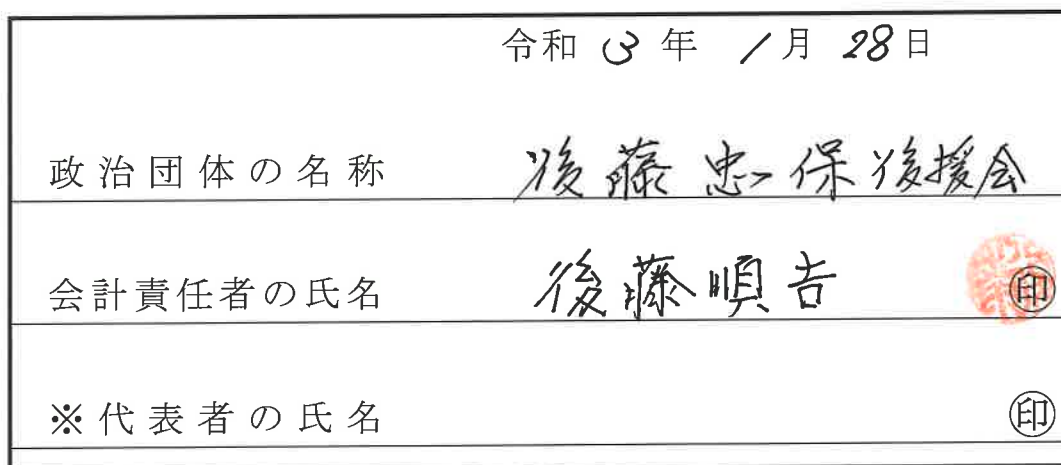 令和3年1月28日
政治団体の名称 後藤忠保後援会
会計責任者の氏名 後藤順吉 ㊞
※代表者の氏名 ㊞